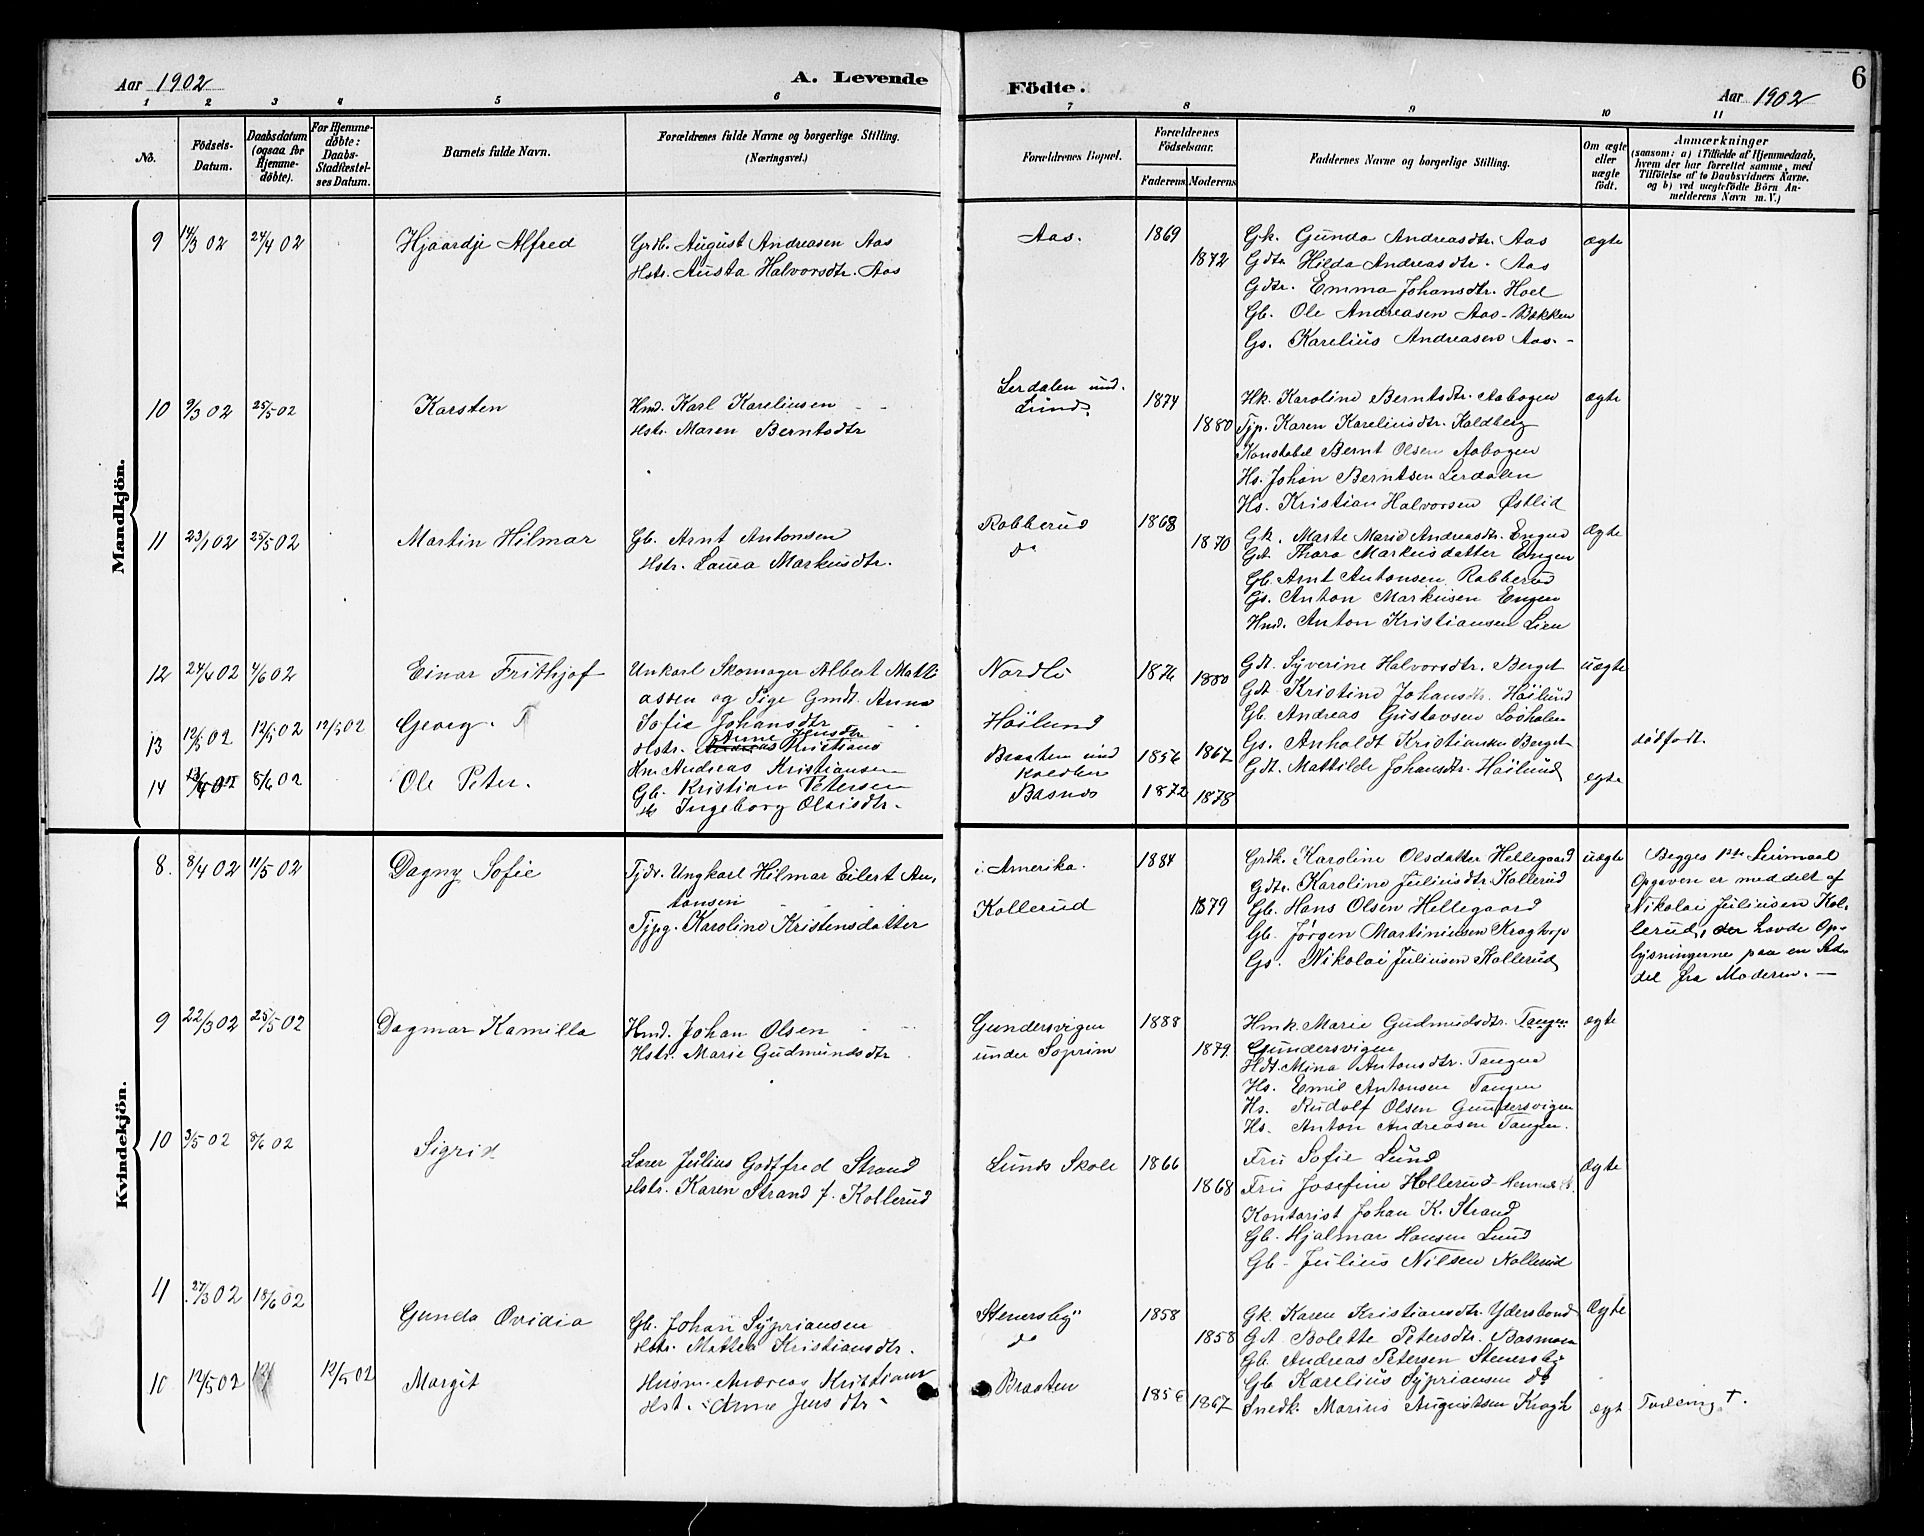 Aar 1902 A. Levende
Födte. Aar 1902 6
1 2 3 4 5 6 7 8 9 10 11
No.
Födsels-Datum.
Daabsdatum (ogsaa for Hjemme-døbte).
For Hjemme-döbte: Daabs-Stadfæstel-ses Datum.
Barnets fulde Navn.
Forældrenes fulde Navne og borgerlige Stilling. (Næringsvei.)
Forældrenes Bopæl.
Forældrenes Födselsaar.
Faderens Moderens
Faddernes Navne og borgerlige Stilling.
Om ægte eller uægte födt.
Anmærkninger
(saasom: a) i Tilfælde af Hjemmedaab,
hvem der har forrettet samme, med
Tilföielse af to Daabsvidners Navne.
og b) ved uægtefödte Börn An-
melderens Navn m. V.)
Mandkjön.
9 14/3 02 24/4 02 Hjaardje Alfred
Grdb. August Andreasen Aas
Hstr. Austa Halvorsdtr. Aas
Aas. 1869 1872
Gk. Gunda Andreasdtr. Aas
Gdtr Hilda Andreasdtr. Aas
Gdtr. Emma Johansdtr. Hoel
Gb. Ole Andreasen Aas-Bakken
Gs. Karelius Andreasen Aas. -
ægte
10 9/3 02 25/5 02 Karsten
Hmd. Karl Kareliusen
Hstr. Maren Berntsdtr
Lerdalen und.
Lund. 1874 1880
Hk. Karoline Berntsdtr. Aabogen
Tjp. Karen Kareliusdtr. Koldberg
Konstabel Bernt Olsen Aabogen
Hs. Johan Berntsen Lerdalen
Hs. Kristian Halvorsen Østlid
ægte
11 23/1 02 25/5 02 Martin Hilmar
Gb. Arnt Antonsen
Hstr. Laura Markusdtr.
Rabberud
do 1868 1870
Gk. Marte Marie Andreasdtr. Engen
Gdt. Thora Markusdatter Engen
Gb. Arnt Antonsen Rabberud
Gs. Anton Markusen Engen
Hmd. Anton Kristiansen Lien
Ægte
12 24/4 02 4/6 02 Einar Frithjof
Unkarl Skomager Albert Matti
assen og Pige Gmdt. Anna
Sofie Johansdtr
Nordli
Höilund 1876 1880
Gdt. Syverine Halvorsdtr. Berget
Gdt Kristine Johansdtr. Höilund
Gb. Andreas Gustavsen
Gs. Anholdt Kristiansen Berget
Gdt. Mathilde Johansdtr. Höilund
uægte
13 12/5 02 12/5 02 12/5 02 Georg.
Anne Jensdtr
Hstr.
Hm Andreas Kristiansen
Braaten und
1856 1867
dödfödt.
14 13/4 02 8/6 02 Ole Peter.
Gb. Kristian Petersen
Hs Ingeborg Olsisdtr.
Basnes 1872 1878
egte
Kvindekjön.
8. 8/4 02 11/5 02 Dagny Sofie
Fjdr. Ungkarl Hilmar Eilert An,
tonsen
Tjpg. Karoline Kristensdatter
i Amerika.
Kollerud 1884 1879
Grdk. Karoline Olsdatter Hellegaard
Gdtr. Karoline Juliusdtr. Kollerud
Gb. Hans Olsen Hellegaard
Gb. Jørgen Martiniusen Kragtorp
Gs. Nikolai Juliusen Kollerud
uægte
Begges 1ste Leiermaal
Opgaven er meddelt af
Nikolai Juliusen Kol-
lerud, der havde Op-
lysningerne paa en Sed-
del fra Moderen. —
9 22/3 02 25/5 02 Dagmar Kamilla
Hmd. Johan Olsen
Hstr. Marie Gudmundsdtr
Gundersvigen
under Soprim 1888 1879.
Hmk. Marie Gudmudsdtr. Tangen
Gundersvigen
Hdt. Mina Antonsdtr. Tangen
Hs. Emil Antonsen Tangen
Hs. Rudolf Olsen Gundersvigen
Hs. Anton Andreasen Tangen.
ægte
10 3/5 02 8/6 02 Sigrid
Lærer Julius Godtfred Strand
Hstr. Karen Strand f. Kollerud
Lunds Skole 1866 1868
Fru Sofie Lund
Fru Josefine Hollerud
Kontorist Johan K. Strand
Gb. Hjalmar Hansen Lund
Gb. Julius Nilsen Kollerud
Ægte
11 27/3 02 18/6 02 Gunda Ovidia
Gb. Johan Sypriansen
Hstr. Mattea Kristiansdtr.
Stenersby
do 1858 1858
Gk. Karen Kristiansdtr. Ydersbond
Gdt Bolette Petersdtr. Basmoen
Gb. Andreas Petersen Stenersby
Gb. Karelius Sypriansen do
Snedk. Marius Augustsen Krogh
Ægte
10 12/5 02 12/5 02 Margit
Husm. Andreas Kristians
Hst. - Anne Jens dtr -
Braaten 1856 1867
ægt
Tvilling †.